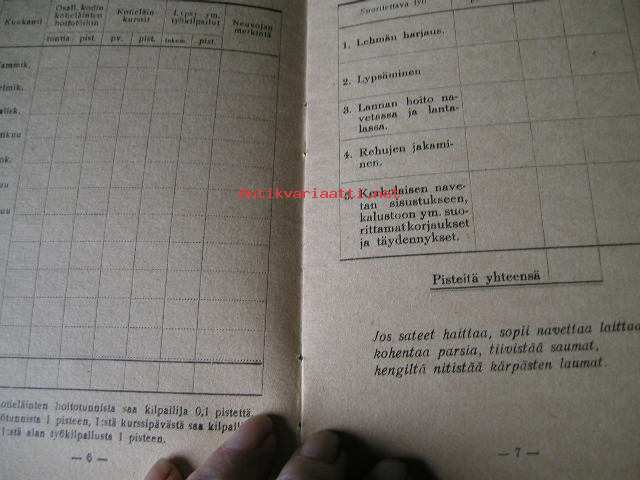 Kuukausi
Osall. kodin
kotieläinten
hoitotöihin
Kotieläin
kurssit
Lypsy- ym.
työkilpailut
Neuvojan
merkintä
tuntia
pist.
pv.
pist.
tulem.
pist.
ammik.
elmik.
alisk.
kuu
ok.
uu
uu
otieläinten hoitotunnista saa kilpailija 0,1 pistettä,
ötunnista 1 pisteen, 1:stä kurssipäivästä saa kilpail
1:stä alan työkilpailusta 1 pisteen.
— 6 —
Suoritettava työ
1. Lehmän harjaus.
2. Lypsäminen
3. Lannan hoito na-
vetassa ja lanta-
lassa.
4. Rehujen jakami-
nen.
5. Karholaisen nave-
tan sisustukseen,
kalustoon ym. suo-
rittamat korjaukset
ja täydennykset.
Pisteitä yhteensä
Jos sateet haittaa, sopii navettaa laittaa
kohentaa parsia, tiivistää saumat,
hengiltä nitistää kärpästen laumat.
— 7 —
Antikvariaatti.net